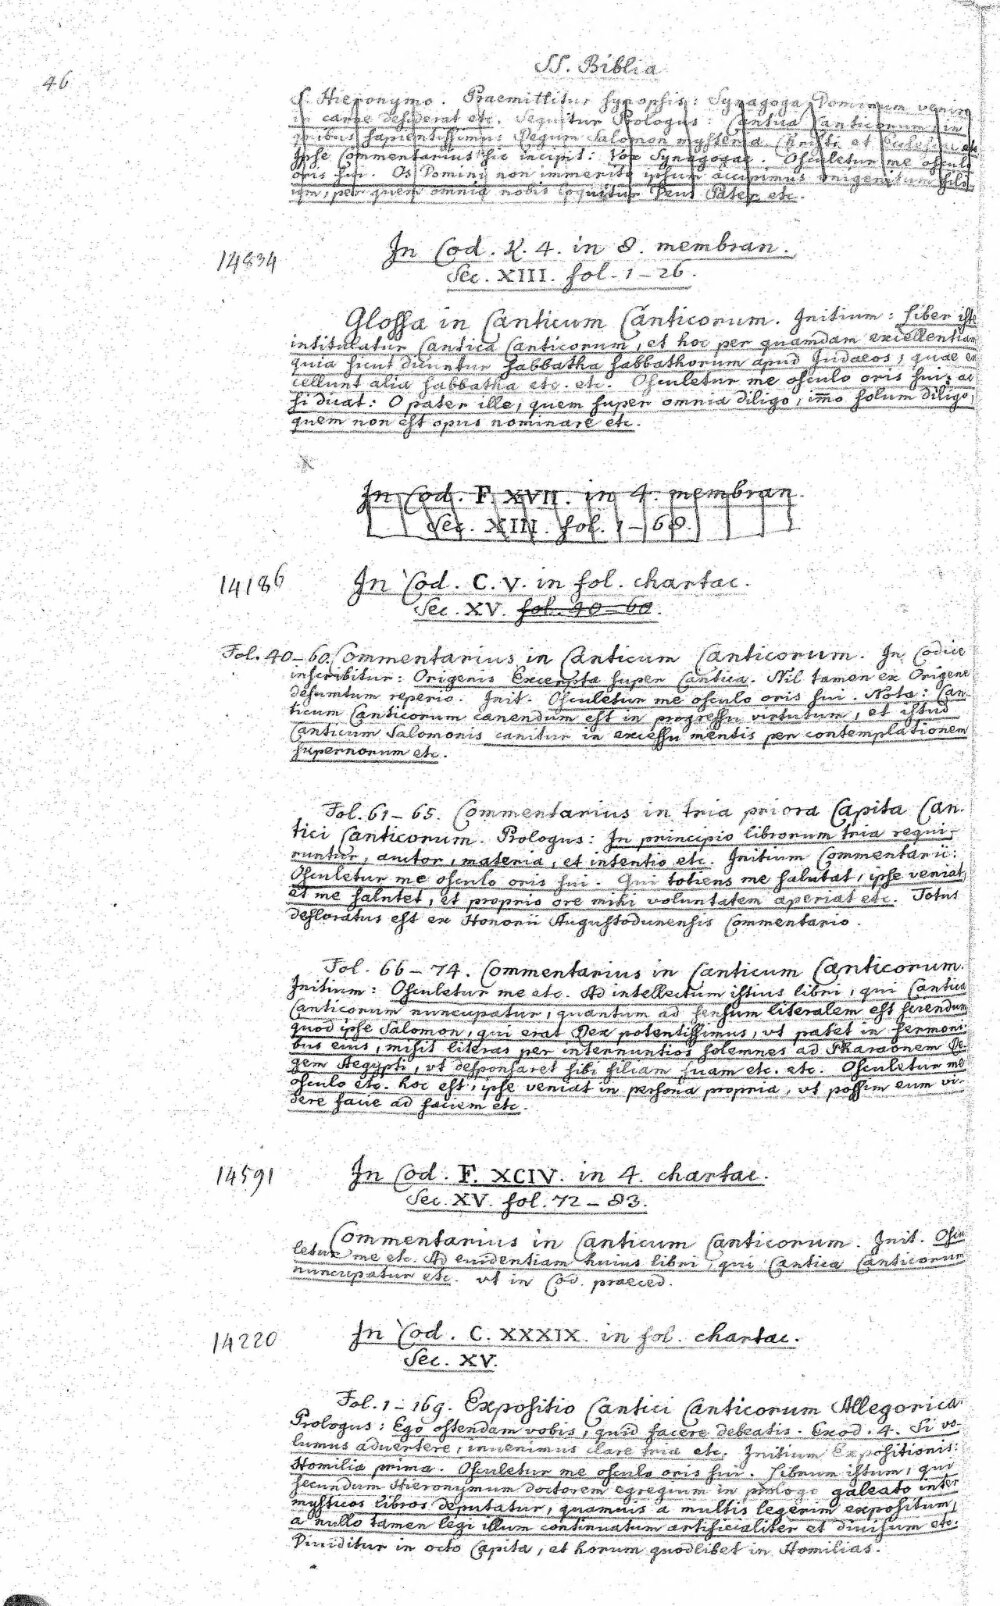 46
SS. Biblia
S. Hieronymo. Praemittitur synopsis: Synagoga Dominum venire
in carne desiderat etc. Sequitur Prologus: Cantica Canticorum in
quibus sapientissimus Regum Salomon mysteria Christi et Ecclesiae etc.
Ipse Commentarius sic incipit: Vox Synagogae. Osculetur me osculo
oris sui. Os Domini non immerito ipsum accipimus unigenitum fili-
um, per quem omnia nobis loquitur Deus Pater etc.
14834
In Cod. K. 4. in 8. membran.
Sec. XIII. fol. 1-26.
Glossa in Canticum Canticorum. Initium: Liber iste
intitulatur Cantica Canticorum, et hoc per quamdam excellentiam
quia sicut dicuntur Sabbatha Sabbathorum apud Judaeos, quae ex
cellunt alia Sabbatha etc. etc. Osculetur me osculo oris sui: ac
si dicat: O pater ille, quem super omnia diligo, imo solum diligo,
quem non est opus nominare etc.
In Cod. F. XVII. in 4. membran.
Sec. XIII. fol. 1-68.
14186
In Cod. C. V. in fol. chartac.
Sec. XV. fol. 40-60.
Fol. 40-60. Commentarius in Canticum Canticorum. In Codice
inscribitur: Origenis Excerpta super Cantica. Nil tamen ex Origene
desumtum reperio. Init. Osculetur me osculo oris sui. Nota: Can-
ticum Canticorum canendum est in progressu virtutum, et istud
Canticum Salomonis canitur in excessu mentis per contemplationem
supernorum etc.
Fol. 61-65. Commentarius in tria priora Capita Can-
tici Canticorum. Prologus: In principio librorum tria requi-
runtur, auctor, materia, et intentio etc. Initium Commentarii:
Osculetur me osculo oris sui. Qui totiens me salutat, ipse veniat,
et me salutet, et proprio ore mihi voluntatem aperiat etc. Totus
defloratus est ex Honorii Augustodunensis Commentario.
Fol. 66-74. Commentarius in Canticum Canticorum.
Initium: Osculetur me etc. Ad intellectum istius libri, qui Cantica
Canticorum nuncupatur, quantum ad sensum literalem est sciendum
quod ipse Salomon, qui erat Rex potentissimus, vt patet in sermoni-
bus eius, misit literas per internuntios solemnes ad Pharaonem Re-
gem Aegypti, vt desponsaret sibi filiam suam etc. etc. Osculetur me
osculo etc. hoc est, ipse veniat in persona propria, vt possim eum vi-
dere facie ad faciem etc.
14591
In Cod. F. XCIV. in 4. chartac.
Sec. XV. fol. 72-83.
Commentarius in Canticum Canticorum. Init. Oscu
letur me etc. Ad euidentiam huius libri, qui Cantica Canticorum
nuncupatur etc. vt in Cod. praeced.
14220
In Cod. C. XXXIX. in fol. chartac.
Sec. XV.
Fol. 1-169. Expositio Cantici Canticorum Allegorica
Prologus: Ego ostendam vobis, quid facere debeatis. Exod. 4. Si vo-
lumus aduertere, inuenimus clare tria etc. Initium Expositionis:
Homilia prima. Osculetur me osculo oris sui. Librum istum, qui
secundum Hieronymum doctorem egregium in prologo galeato inter
mysticos libros deputatur, quamuis a multis legerim expositum,
a nullo tamen legi illum continuatum artificialiter et diuisum etc.
Diuiditur in octo Capita, et horum quodlibet in Homilias.